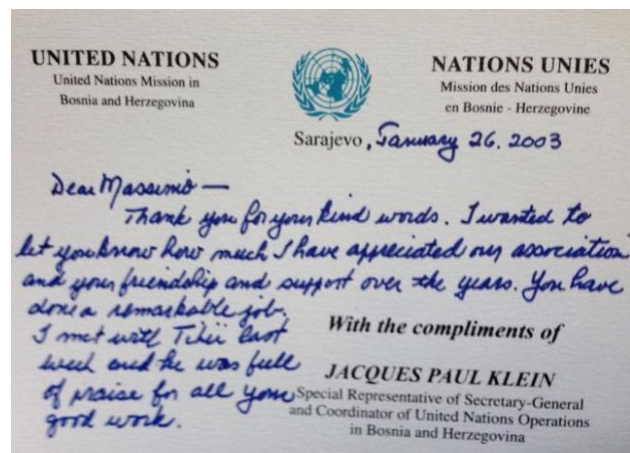 UNITED NATIONS
United Nations Mission in
Bosnia and Herzegovina
NATIONS UNIES
Mission des Nations Unies
en Bosnie - Herzegovine
Sarajevo, January 26, 2003
Dear Massimo —
Thank you for your kind words. I wanted to
let you know how much I have appreciated our association
and your friendship and support over the years. You have
done a remarkable job.
I met with Tihi last
week and he was full
of praise for all your
good work.
With the compliments of
JACQUES PAUL KLEIN
Special Representative of Secretary-General
and Coordinator of United Nations Operations
in Bosnia and Herzegovina